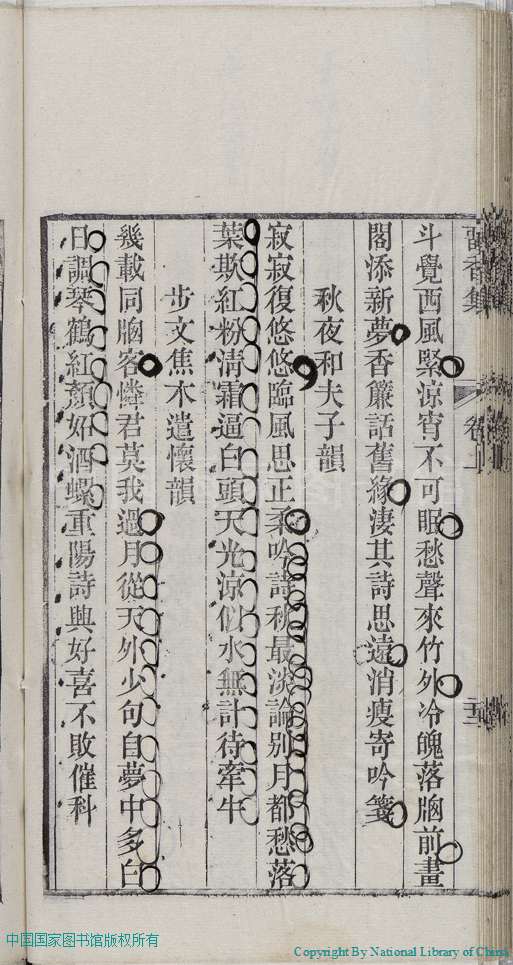 留香集
卷上
斗覺西風緊涼宵不可眠愁聲來竹外冷魄落牕前畫
閣添新夢香簾話舊緣淒其詩思遠消瘦寄吟箋
秋夜和夫子韻
寂寂復悠悠臨風思正柔吟詩秋最淡論別月都愁落
葉欺紅粉清霜逼白頭天光涼似水無計待牽牛
步文焦木遣懷韻
幾載同牕客憐君莫我過月從天外少句自夢中多白
日調琴鶴紅顏好酒螺重陽詩興好喜不敗催科
中国国家图书馆版权所有
Copyright By National Library of China